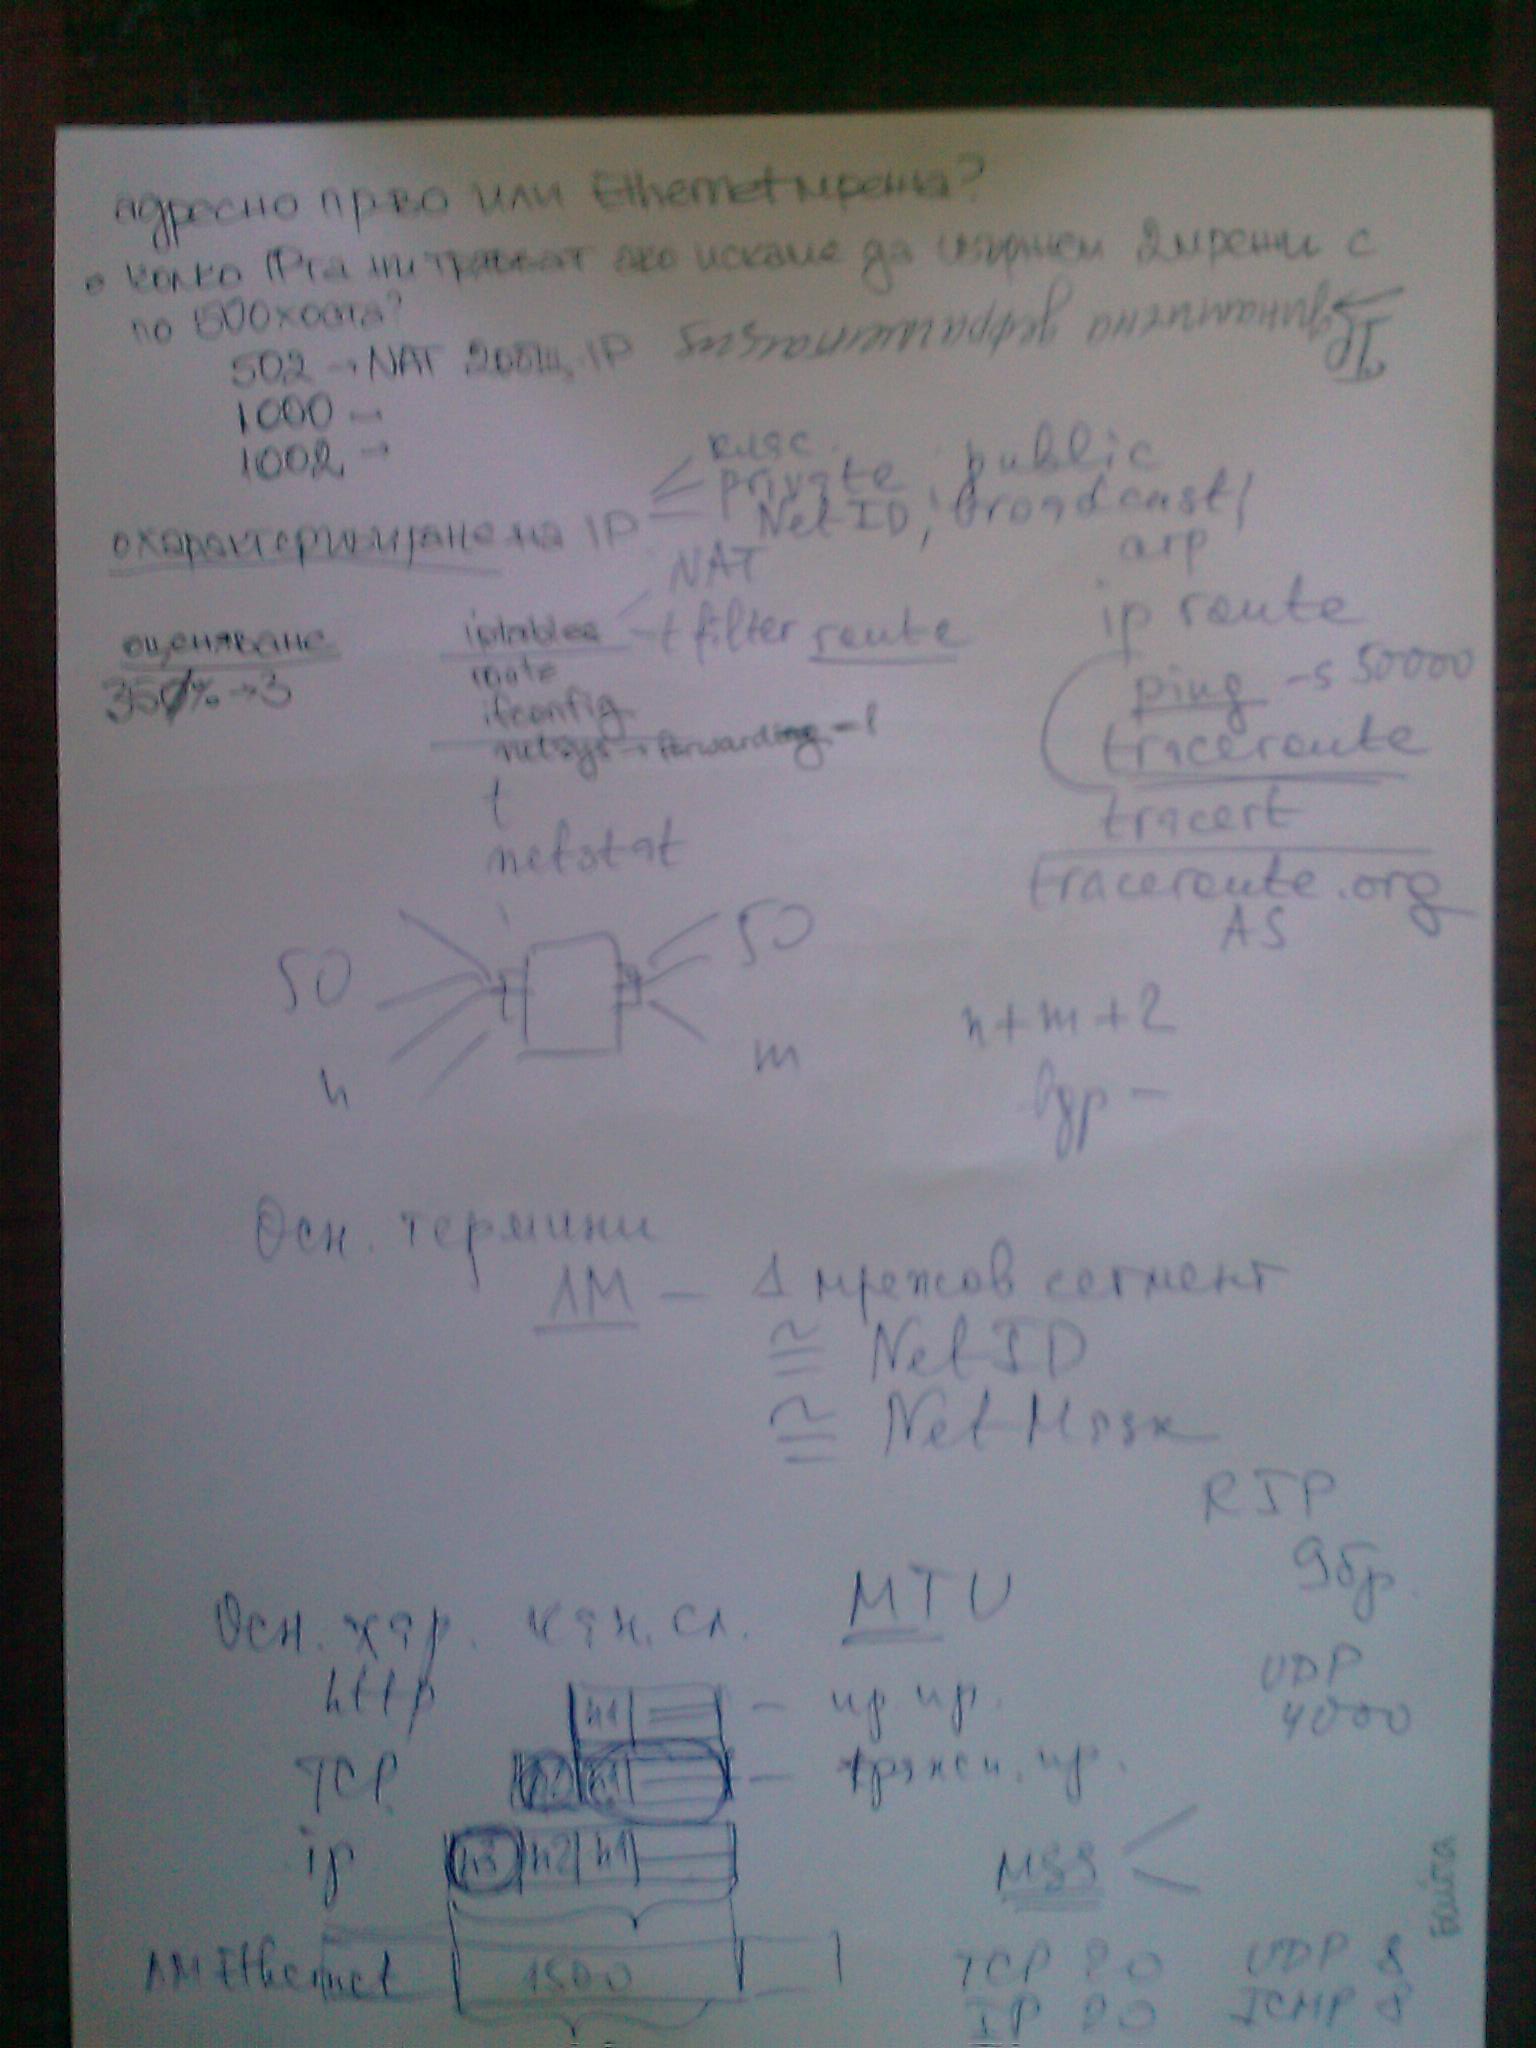 адресно пр-во или Ethernet мрежа?
• колко IPта ни трябват ако искаме да свържем 2 мрежи с
по 500 хоста?
динамична дефрагментация
502 → NAT 2 общ. IP
1000 →
1002 →
клас
private public
охарактеризиране на IP
Net ID; broadcast/
arp
NAT
оценяване
iptables -t filter route
ip route
35% → 3
route
ping -s 50000
ifconfig
traceroute
netsys → forwarding = 1
tracert
netstat
traceroute.org
AS
50 50
n m
n+m+2
bgp -
Осн. термини
ЛМ - 1 мрежов сегмент
≅ Net ID
≅ Net Mask
RIP
9бр.
Осн. хар. кан. сл. MTU
UDP
4000
http h1 - пр. пр.
TCP h2 h1 - трансп. пр.
ip h3 h2 h1
MSS
ЛМ Ethernet 1500
TCP 20 UDP 8
IP 20 ICMP 8